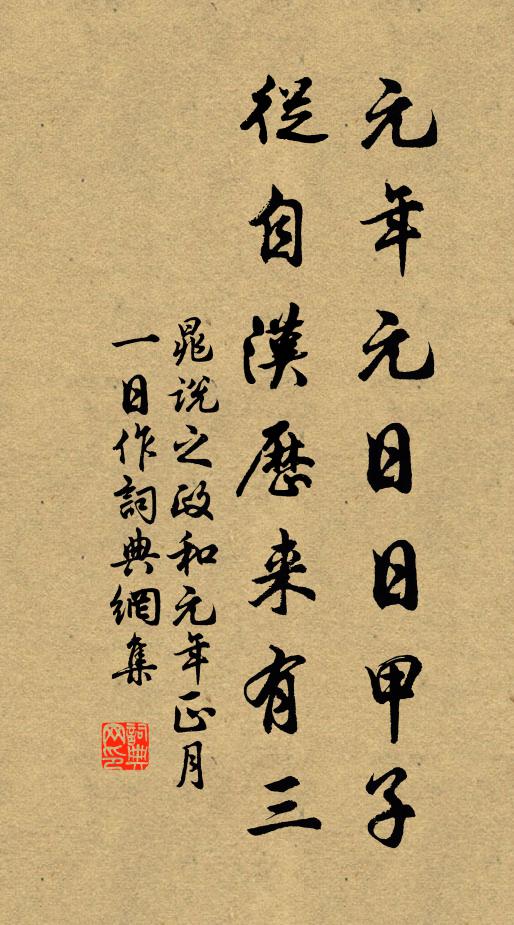 元年元日日甲子
從自漢曆来有三
晁說之政和元年正月
一日作詞典網集
詞典網印